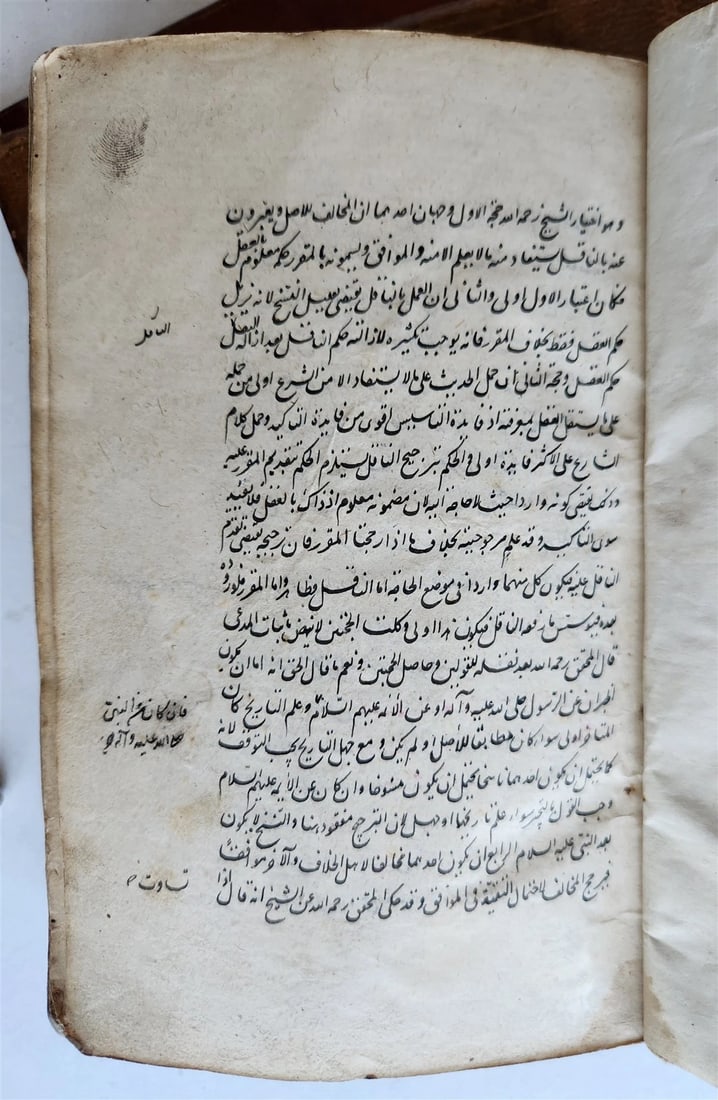 وهو اختيار الشيخ رحمه الله حجة الاول وجهان احدهما ان المخالف للاصل ويعبرون
عنه بالناقل يستفاد منه ما لا يعلم الا منه والموافق ويسمونه بالمقرر حكمه معلوم بالعقل
فكان اعتبار الاول اولى والثانى ان العمل بالناقل يقتضى تقليل النسخ لانه يزيل
حكم العقل فقط بخلاف المقرر فانه يوجب تكثيره لازالته حكم الناقل بعد ازالة الناقل
حكم العقل وحجة الثانى ان حمل الحديث على ما لا يستفاد الا من الشرع اولى من حمله
على ما يستقل العقل بمعرفته اذ فايدة التاسيس اقوى من فايدة التاكيد وحمل كلام
الشارع على الاكثر فايدة اولى والحكم بترجيح الناقل يستلزم الحكم بتقديم المقرر عليه
وذلك يقتضى كونه واردا حيث لا حاجة اليه لان مضمونه معلوم اذ ذاك بالعقل فلا يفيد
سوى التاكيد وقد علم مرجوحيته بخلاف ما اذا رجحنا المقرر فان ترجيحه يقتضى تقديم
الناقل عليه فيكون كل منهما واردا فى موضع الحاجة اما الناقل فظاهر واما المقرر فلوروده
بعده فيؤسس ما رفعه الناقل فيكون هذا اولى وكلتا الحجتين لا تنهض باثبات المدعى
قال المحقق رحمه الله بعد نقله للقولين وحاصل الحجتين ونعم ما قال الحق انه اما ان يكون
الخبران عن الرسول صلى الله عليه وآله او عن الأئمة عليهم السلام وعلم التاريخ كان
المتاخر اولى سواء كان مطابقا للأصل او لم يكن ومع جهل التاريخ يجب التوقف لانه
كما يحتمل ان يكون احدهما ناسخا يحتمل ان يكون منسوخا وان كان عن الأئمة عليهم السلام
وجب القول بالتخيير سواء علم تاريخهما او جهل لان الترجيح مفقود هنا والنسخ لا يكون
بعد النبى عليه السلام الرابع ان يكون احدهما مخالفا لاهل الخلاف والآخر موافقا
فيرجح المخالف لاحتمال التقية فى الموافق وقد حكى المحقق رحمه الله عن الشيخ انه قال اذا
فان كان عن النبى
صلى الله عليه وآله
تساوت